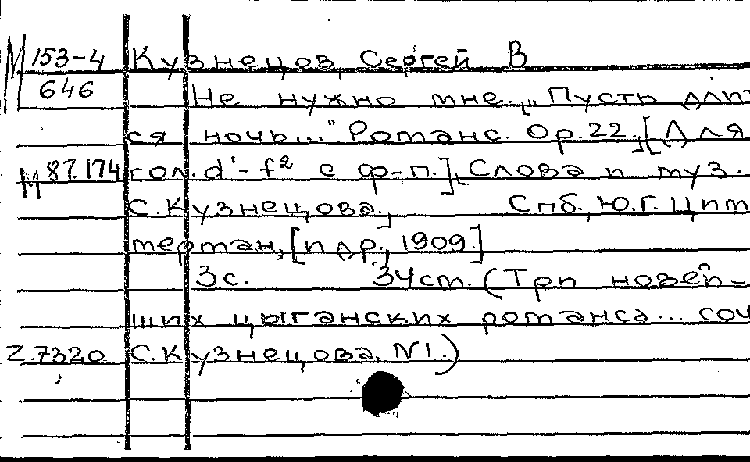 М 153-4 Кузнецов, Сергей В
646 Не нужно мне. "Пусть длит-
ся ночь..." Романс. Ор.22, [Для
М 87.174 гол. d¹-f² с ф-п.], Слова и муз.
С. Кузнецова, Спб, Ю.Г. Цим
мерман, [и др., 1909.]
3с. 34см. (Три новей-
ших цыганских романса... соч
Z.7320 С. Кузнецова. N1.)